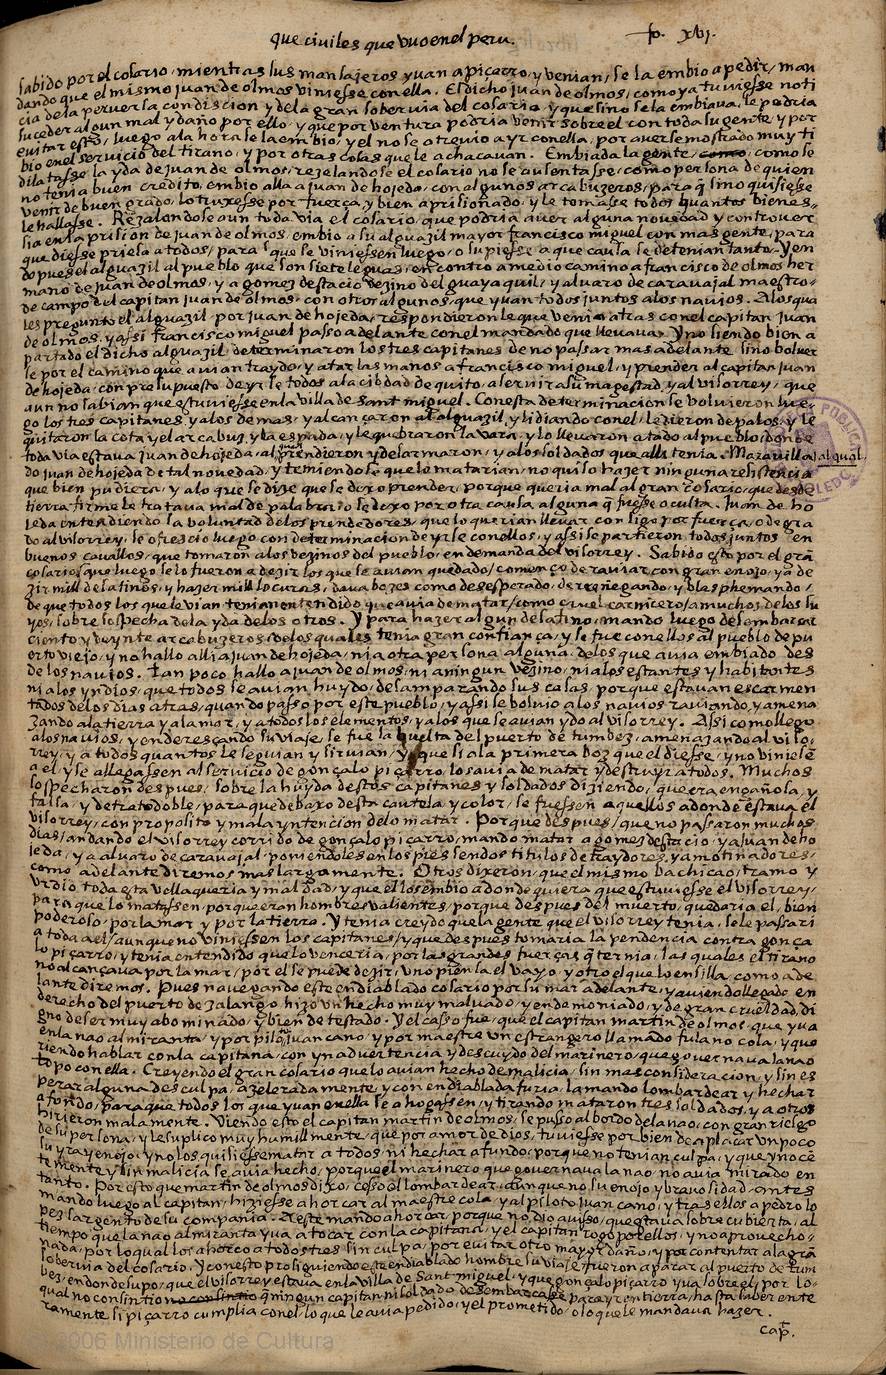 que ciuiles que vuo en el peru. fo. xvj.
sabido por el cosario, mientras sus mansajeros yuan a piçarro, y venian, se la embio a pedir, man
dando que el mismo juan de olmos viniesse con ella. El dicho juan de olmos, como ya tuuiesse noti
cia de la peruersa condiscion y de la gran soberuia del cosario, y que sino se la embiaua, le podria
suceder algun mal y daño por ello, y que por ventura podria venir sobre el con toda su gente, y por
euitar esto, luego a la hora se la embio, y el no se atreuio a yr con ella, por auerse mostrado muy ti
bio en el seruicio del tirano, y por otras cosas que le achacauan. Embiada la gente, como se
dilatasse la yda de juan de olmos, rejelandose el cosario no se ausentasse, como persona de quien
no tenia buen credito, embio alla a juan de hojeda, con algunos arcabuzeros, para q̃ sino quisiesse
venir de buen grado, lo truxesse por fuerça, y bien aprisionado, y le tomasse todos quantos bienes
le hallasse. Rezalandose aun toda via el cosario, que podria auer alguna nouedad y controuer
sia en la prision de juan de olmos, embio a su alguazil mayor francisco miguel con mas gente, para
que diesse priesa a todos, para que se viniessen luego, o supiesse a que causa se detenian tanto. Yen
do pues el alguazil al pueblo que son siete leguas, encontro a medio camino a francisco de olmos her
mano de juan de olmos, y a gomez destacio vezino del guayaquil, y aluaro de carauajal maestro
de campo del capitan juan de olmos, con otros algunos, que yuan todos juntos a los nauios. A los qua
les pregunto el alguazil por juan de hojeda, respondieron le que venia atras con el capitan juan
de olmos, y assi francisco miguel passo adelante con el mandado que lleuaua. Y no siendo bien a
partado el dicho alguazil, determinaron los tres capitanes de no passar mas adelante, sino boluer
se por el camino que auian traydo, y atar las manos a francisco miguel, y prender al capitan juan
de hojeda, con presupuesto de yrse todos a la cibdad de quito, a seruir a su magestad, y al visorrey, que
aun no sabian que estuuiesse en la villa de sant miguel. Con esta determinacion se voluieron lue
go los tres capitanes, y los de mas, y alcançaron al alguazil, y lidiando con el, le dieron de palos, y le
quitaron la cota y el arcabuz, y la espada, y le quebraron la vara, y lo lleuaron atado al pueblo, donde
toda via estaua juan de hojeda, al qual prendieron y desarmaron, y a los soldados que alli tenia. Marauilla
do juan de hojeda de tal nouedad, y temiendose que lo matarian, no quiso hazer ninguna resistencia
que bien pudiera, y a lo que se dize que se dexo prender, porque queria mal al gran cosario, que desde
tierra firme le trataua mal de palabra, o se dexo por otra causa alguna q̃ fuesse oculta. Juan de ho
jeda entendiendo la voluntad de los prendedores, que lo querian lleuar consigo por fuerça, o de gra
do al visorrey, se ofrescio luego con determinacion de yrse con ellos, y assi se partieron todos juntos en
buenos cauallos, que tomaron a los vezinos del pueblo, en demanda del visorrey. Sabido esto por el grã
cosario que luego se lo fueron a dezir los que se auian quedado, començo de rauiar con gran enojo, ya de
zir mill desatinos, y hazer mill locuras, daua bozes como desesperado, de renegando, y blasphemando,
de que todos los que le vian tenian entendido que auia de matar, como cruel carnicero, a muchos de los su
yos, sobre sospecha de la yda de los otros. Y para hazer algun desatino, mando luego desembarcar
ciento y veynte arcabuzeros, de los quales tenia gran confiança, y se fue con ellos al pueblo de pu
erto viejo, y no hallo alli a juan de hojeda, ni a otra persona alguna, de los que auia embiado des
de los nauios. Tan poco hallo a juan de olmos, ni a ningun vezino, ni a los estantes y habitantes
ni a los yndios, que todos se auian huydo, desamparando sus casas, porque estauan escarmen
tados de los dias atras, quando passo por este pueblo, y assi se boluio a los nauios rauiando, y amena
zando a la tierra y a la mar, y a todos los elementos, y a los que se auian ydo al visorrey. Assi como llego
a los nauios, y enderesçando su viaje, se fue la buelta del puerto de tumbez, amenazando al viso
rrey, y a todos quantos le seguian y siruian, y que si a la primera boz que el diesse, y no viniessẽ
a el, y se allegassen al seruicio de gonçalo piçarro, los auia de matar y destruyr a todos. Muchos
sospecharon despues, sobre la huyda destos capitanes y soldados diziendo, que era engañosa, y
falsa, y de trato doble, para que debaxo desta cautela y color, se fuessen a aquellos a donde estaua el
visorrey, con proposito y mala yntencion de lo matar. Porque despues, que no passaron muchos
dias, andando el visorrey corrido de gonçalo piçarro, mando matar a gomez destacio, y a juan de ho
jeda, y a aluaro de carauajal, poniendoles en los pies sendos titulos de traydores, y amotinadores,
como adelante diremos mas largamente. Otros dixeron, que el mismo bachicao, tramo y
vrdio toda esta vellaqueria y maldad, y que el los embio a donde quiera que estuuiesse el visorrey,
para que lo matassen, porque eran hombres valientes, porque despues del muerto, quedaria el, bien
poderoso, por la mar y por la tierra. Y tenia creydo que la gente que el visorrey tenia, se le passari
a toda a el, aunque no viniessen los capitanes, y que despues tomaria la pendencia contra gonça
lo piçarro, y tenia entendido que lo venceria, por las grandes fuerças q̃ ternia, las quales el tirano
no alcançaua por la mar, por el se puede dezir, vno piensa el vayo, y otro el que lo ensilla, como ade
lante diremos. Pues nauegando este endiablado cosario por su mar adelante, y auiendo llegado en
derecho del puerto de jalango, hizo vn hecho muy maluado, y endemoniado, y de gran crueldad, di
gno de ser muy abominado, y bien detestado. Y el casso fue, que el capitan martin de olmos, que yua
en la nao almiranta, y por piloto juan cano, y por maestre vn estrangero llamado fulano cola, y que
riendo hablar con la capitana, con ynaduertencia y descuydo del marinero, que gouernaua la nao
topo con ella. Creyendo el gran cosario que lo auian hecho de malicia, sin mas consideracion, y sin es
perar alguna desculpa, azeleradamente, y con endiablada furia, la mando lombardear y hechar
a fondo, para que todos los que yuan en ella se ahogassen, y tirando mataron tres soldados, y a otros
hirieron malamente. Viendo esto el capitan martin de olmos, se puso al bordo de la nao, con gran riesgo
de su persona, y le suplico muy humillmente, que por amor de dios, tuuiesse por bien de aplacar vn poco
su yra y enojo, y no los quisiesse matar a todos, ni hechar a fundo, porque no tenian culpa, y que ynoce
temente y sin malicia se auia hecho, porque el marinero que gouernaua la nao, no auia mirado en
tanto. Por esto que martin de olmos dixo, cesso el lombardear, aunque no su enojo y brauosidad, antes
mando luego al capitan, hiziesse ahorcar al maestre cola, y al piloto juan cano, y tras ellos a pedro lo
pez sargento de su compañia. A este mando ahorcar, porque no dio auiso, que estaua sobre cubierta, al
tiempo que la nao almiranta yua a tocar con la capitana, y el capitan rogo por ellos, y no aprouecho
nada, por lo qual los ahorco a todos tres sin culpa, por euitar otro mayor daño, y por contentar a la grã
soberuia del cosario. Y con esto prosiguiendo este endiablado hombre su viaje, fueron a parar al puerto de tum
bez, en donde supo, que el visorrey estaua en la villa de Sant miguel, y que gonçalo piçarro yua sobre el, por lo
qual no consintio q̃ ningun capitan ni soldado desembarcasse para yr en tierra, hasta saber ente
ramente si piçarro cumplia con el, lo que le auia pedido, y el prometido, o lo que le mandaua hazer.
cap̃.
©2006 Ministerio de Cultura